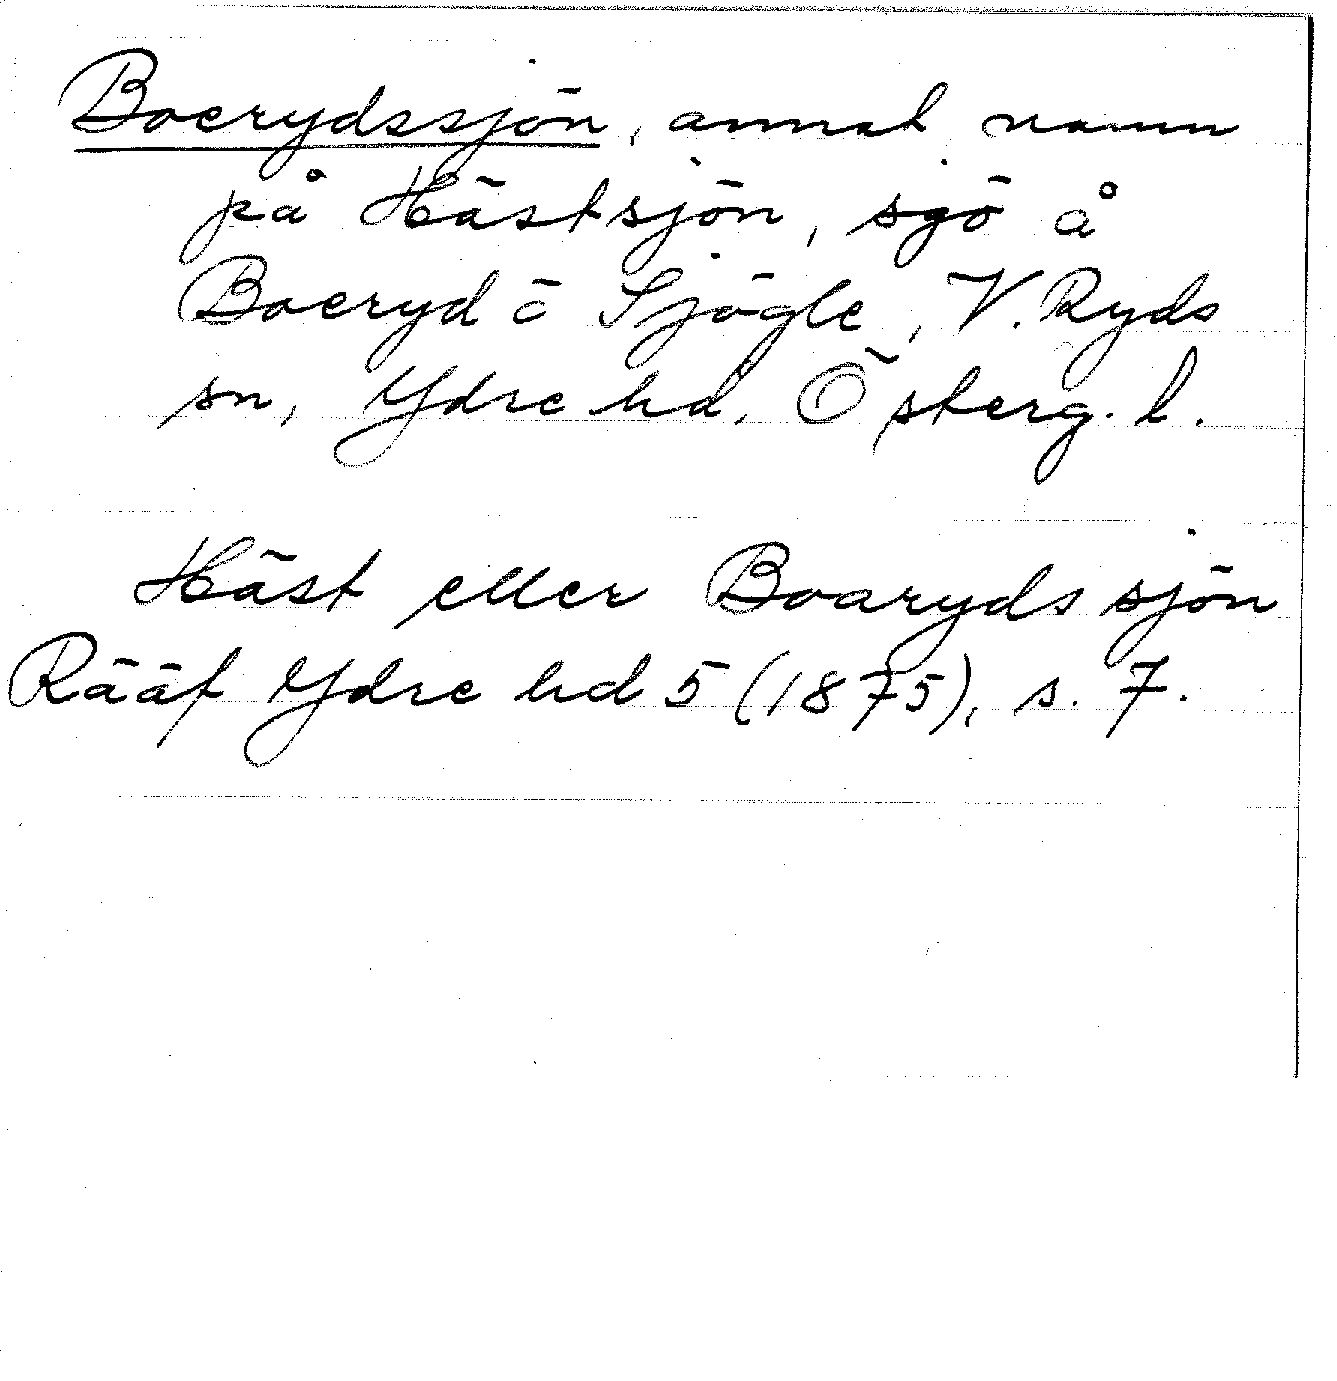 Boerydssjön, annat namn
på Hästsjön, sjö å
Boeryd ö Sjögle, V. Ryds
sn, Ydre hd. Östergl.
Häst eller Boaryds sjön
Rääf Ydre hd 5 (1875), s. 7.